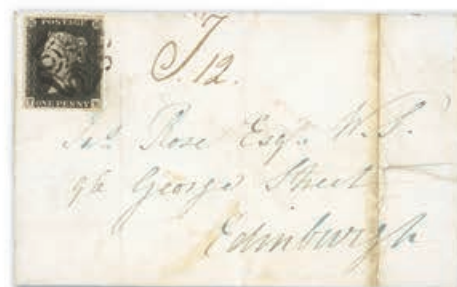 POSTAGE
ONE PENNY
J 12.
Jas. Rose Esqr. W.S.
96 George Street
Edinburgh